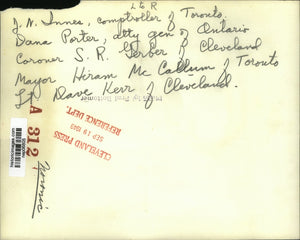 L & R
J. N. Innes, comptroller of Toronto,
Dana Porter, atty gen of Ontario
Coroner S. R. Gerber of Cleveland
Mayor Hiram Mc Callum of Toronto
Lt Dave Kerr of Cleveland.
CLEVELAND PRESS
SEP 19 1949
REFERENCE DEPT.
A 312